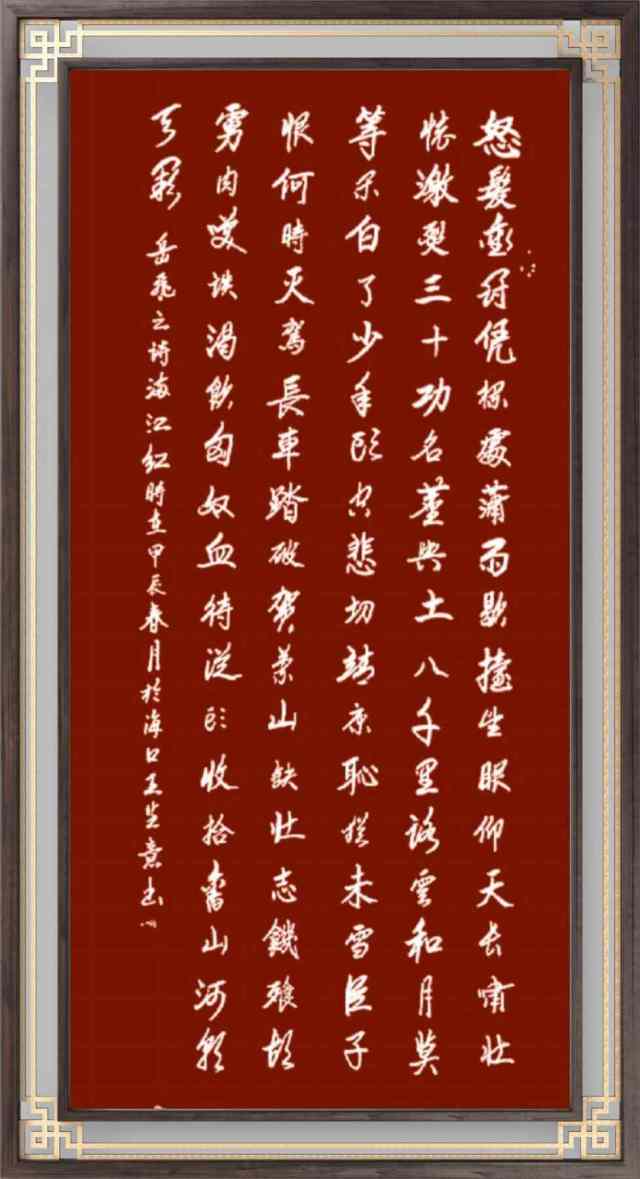 怒髮衝冠凭栏處潇雨歇擡望眼仰天长嘯壮
懷激烈三十功名塵與土八千里路雲和月莫
等闲白了少年頭空悲切靖康恥猶未雪臣子
恨何時灭駕長車踏破賀蘭山缺壮志饑飡胡
虜肉笑談渴飲匈奴血待從頭收拾舊山河朝
天闕 岳飛之詩滿江紅時在甲辰春月於海口王意书